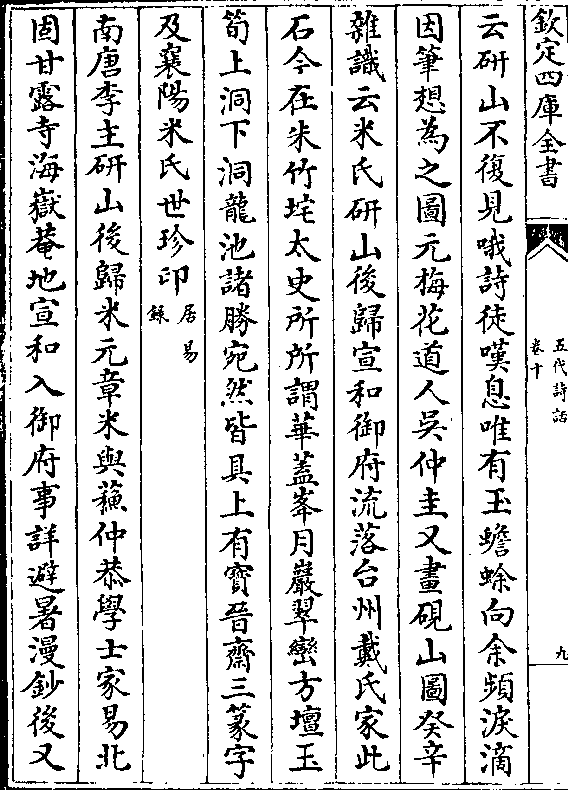 欽定四庫全書
五代詩話
卷十
九
云研山不復見哦詩徒嘆息唯有玉蟾蜍向余頻淚滴
因筆想為之圖元梅花道人吳仲圭又畫硯山圖癸辛
雜識云米氏研山後歸宣和御府流落台州戴氏家此
石今在朱竹垞太史所所謂華蓋峯月巖翠巒方壇玉
筍上洞下洞龍池諸勝宛然皆具上有寳晉齋三篆字
及襄陽米氏世珍印居易錄
南唐李主研山後歸米元章米與蘇仲恭學士家易北
固甘露寺海嶽菴地宣和入御府事詳避暑漫鈔後又